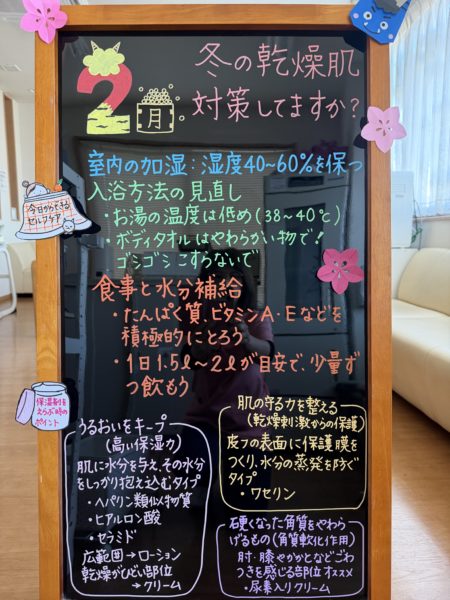 2月
冬の乾燥肌
対策してますか?
室内の加湿：湿度40~60%を保つ
入浴方法の見直し
・お湯の温度は低め(38~40℃)
・ボディタオルはやわらかい物で!
ゴシゴシこすらないで
今日からできる
セルフケア
食事と水分補給
・たんぱく質、ビタミンA・Eなどを
積極的にとろう
・1日1.5ℓ~2ℓが目安で、少量ず
つ飲もう
保湿剤を
えらぶ時の
ポイント
うるおいをキープ
(高い保湿力)
肌に水分を与え、その水分
をしっかり抱え込むタイプ
・ヘパリン類似物質
・ヒアルロン酸
・セラミド
広範囲→ローション
乾燥がひどい部位
→クリーム
肌の守る力を整える
(乾燥刺激からの保護)
皮フの表面に保護膜を
つくり、水分の蒸発を防ぐ
タイプ
・ワセリン
硬くなった角質をやわら
げるもの(角質軟化作用)
肘・膝やかかとなどごわ
つきを感じる部位オススメ
・尿素入りクリーム